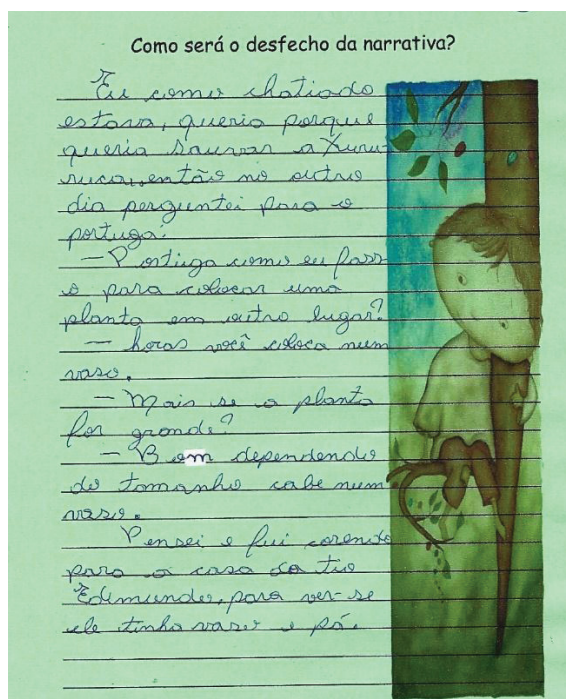 Como será o desfecho da narrativa?
Eu como chatiado
estava, queria porque
queria sauvar a Xuru
ruca, então no outro
dia perguntei para o
portuga:
— Portuga como eu fass
o para colocar uma
planta em outro lugar?
— horas você coloca num
vaso.
— Mais se a planta
for grande?
— Bom dependendo
do tamanho cabe num
vaso.
Pensei e fui corendo
para a casa do tio
Edimundo, para ver-se
ele tinha vaso e pá.